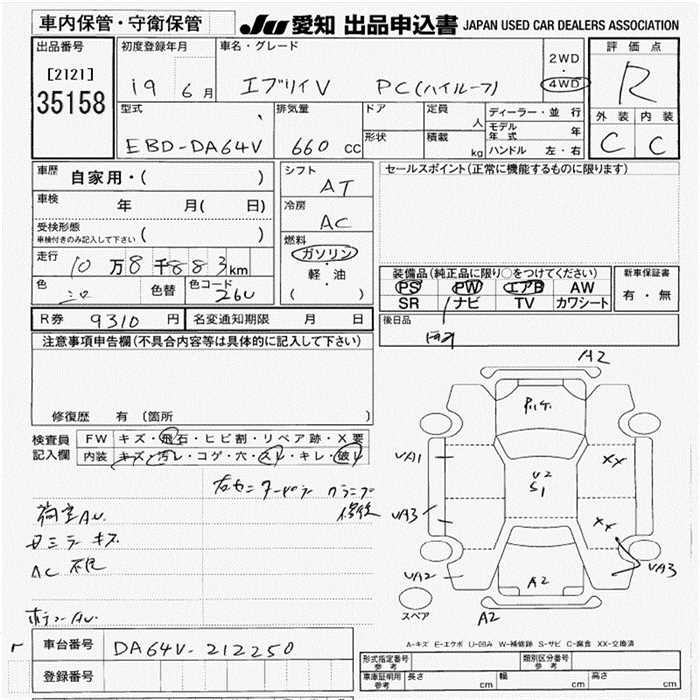 車内保管・守衛保管
JU 愛知 出品申込書 JAPAN USED CAR DEALERS ASSOCIATION
出品番号
[2121]
35158
初度登録年月
19 6月
車名・グレード
エブリイV PC(ハイルーフ)
2WD
・
4WD
評価点
R
外装 内装
C C
型式
EBD-DA64V
排気量
660 cc
ドア
形状
定員 人
積載 kg
ディーラー・並行
モデル年式 年
ハンドル 左・右
車歴
自家用・( )
車検 年 月( 日)
受検形態
車検付きのみ記入して下さい ( )
走行
10万8千883km
色 シロ 色替
色コード 26U
シフト
AT
冷房
AC
燃料
ガソリン
・
軽・油
( )
セールスポイント(正常に機能するものに限ります)
装備品(純正品に限り○をつけてください)
PS PW エアB AW
SR ナビ TV カワシート
新車保証書
有・無
R券 9310 円
名変通知期限 月 日
後日品
注意事項申告欄(不具合内容等は具体的に記入して下さい)
修復歴 有 (箇所 )
検査員
記入欄
FW キズ・飛石・ヒビ割・リペア跡・X要
内装 キズ・汚レ・コゲ・穴・スレ・キレ・破レ
荷室AU
AC 不良
A2
UA1
UA3
UA2
U2
S1
XX
XX
UA3
A2
A2
スペア
A-キズ E-エクボ U-凹み W-補修跡 S-サビ C-腐食 XX-交換済
車台番号 DA64V-212250
登録番号
形式指定番号
参考
類別区分番号
参考
車庫証明用
参考
長さ cm 幅 cm 高さ cm